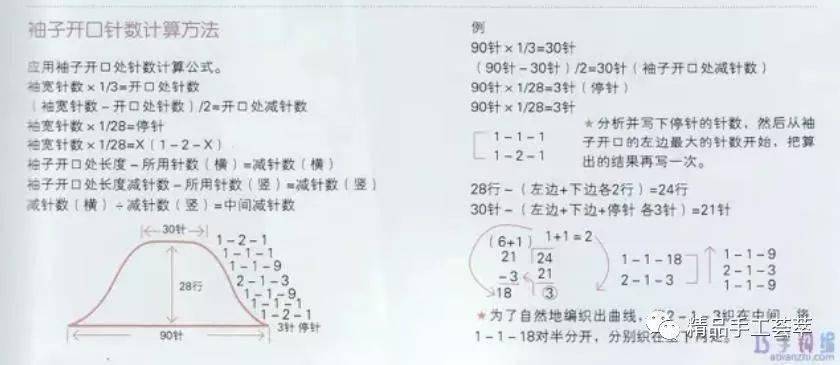 袖子开口针数计算方法
应用袖子开口处针数计算公式。
袖宽针数×1/3=开口处针数
（袖宽针数－开口处针数）/2=开口处减针数
袖宽针数×1/28=停针
袖宽针数×1/28=X（1-2-X）
袖子开口处长度－所用针数（横）=减针数（横）
袖子开口处长度减针数－所用针数（竖）=减针数（竖）
减针数（横）÷减针数（竖）=中间减针数
30针
1-2-1
1-1-1
1-1-9
2-1-3
1-1-9
1-1-1
1-2-1
3针 停针
28行
90针
例
90针×1/3=30针
（90针－30针）/2=30针（袖子开口处减针数）
90针×1/28=3针（停针）
90针×1/28=3针
1-1-1
1-2-1
★分析并写下停针的针数，然后从袖
子开口的左边最大的针数开始，把算
出的结果再写一次。
28行－（左边+下边各2行）=24行
30针－（左边+下边+停针 各3针）=21针
(6+1) 1+1=2
21 24
-3 21
18 ③
1-1-18
2-1-3
1-1-9
2-1-3
1-1-9
★为了自然地编织出曲线，2-1-3织在中间，将
1-1-18对半分开，分别织在
精品手工荟萃
编
abianzhi.com